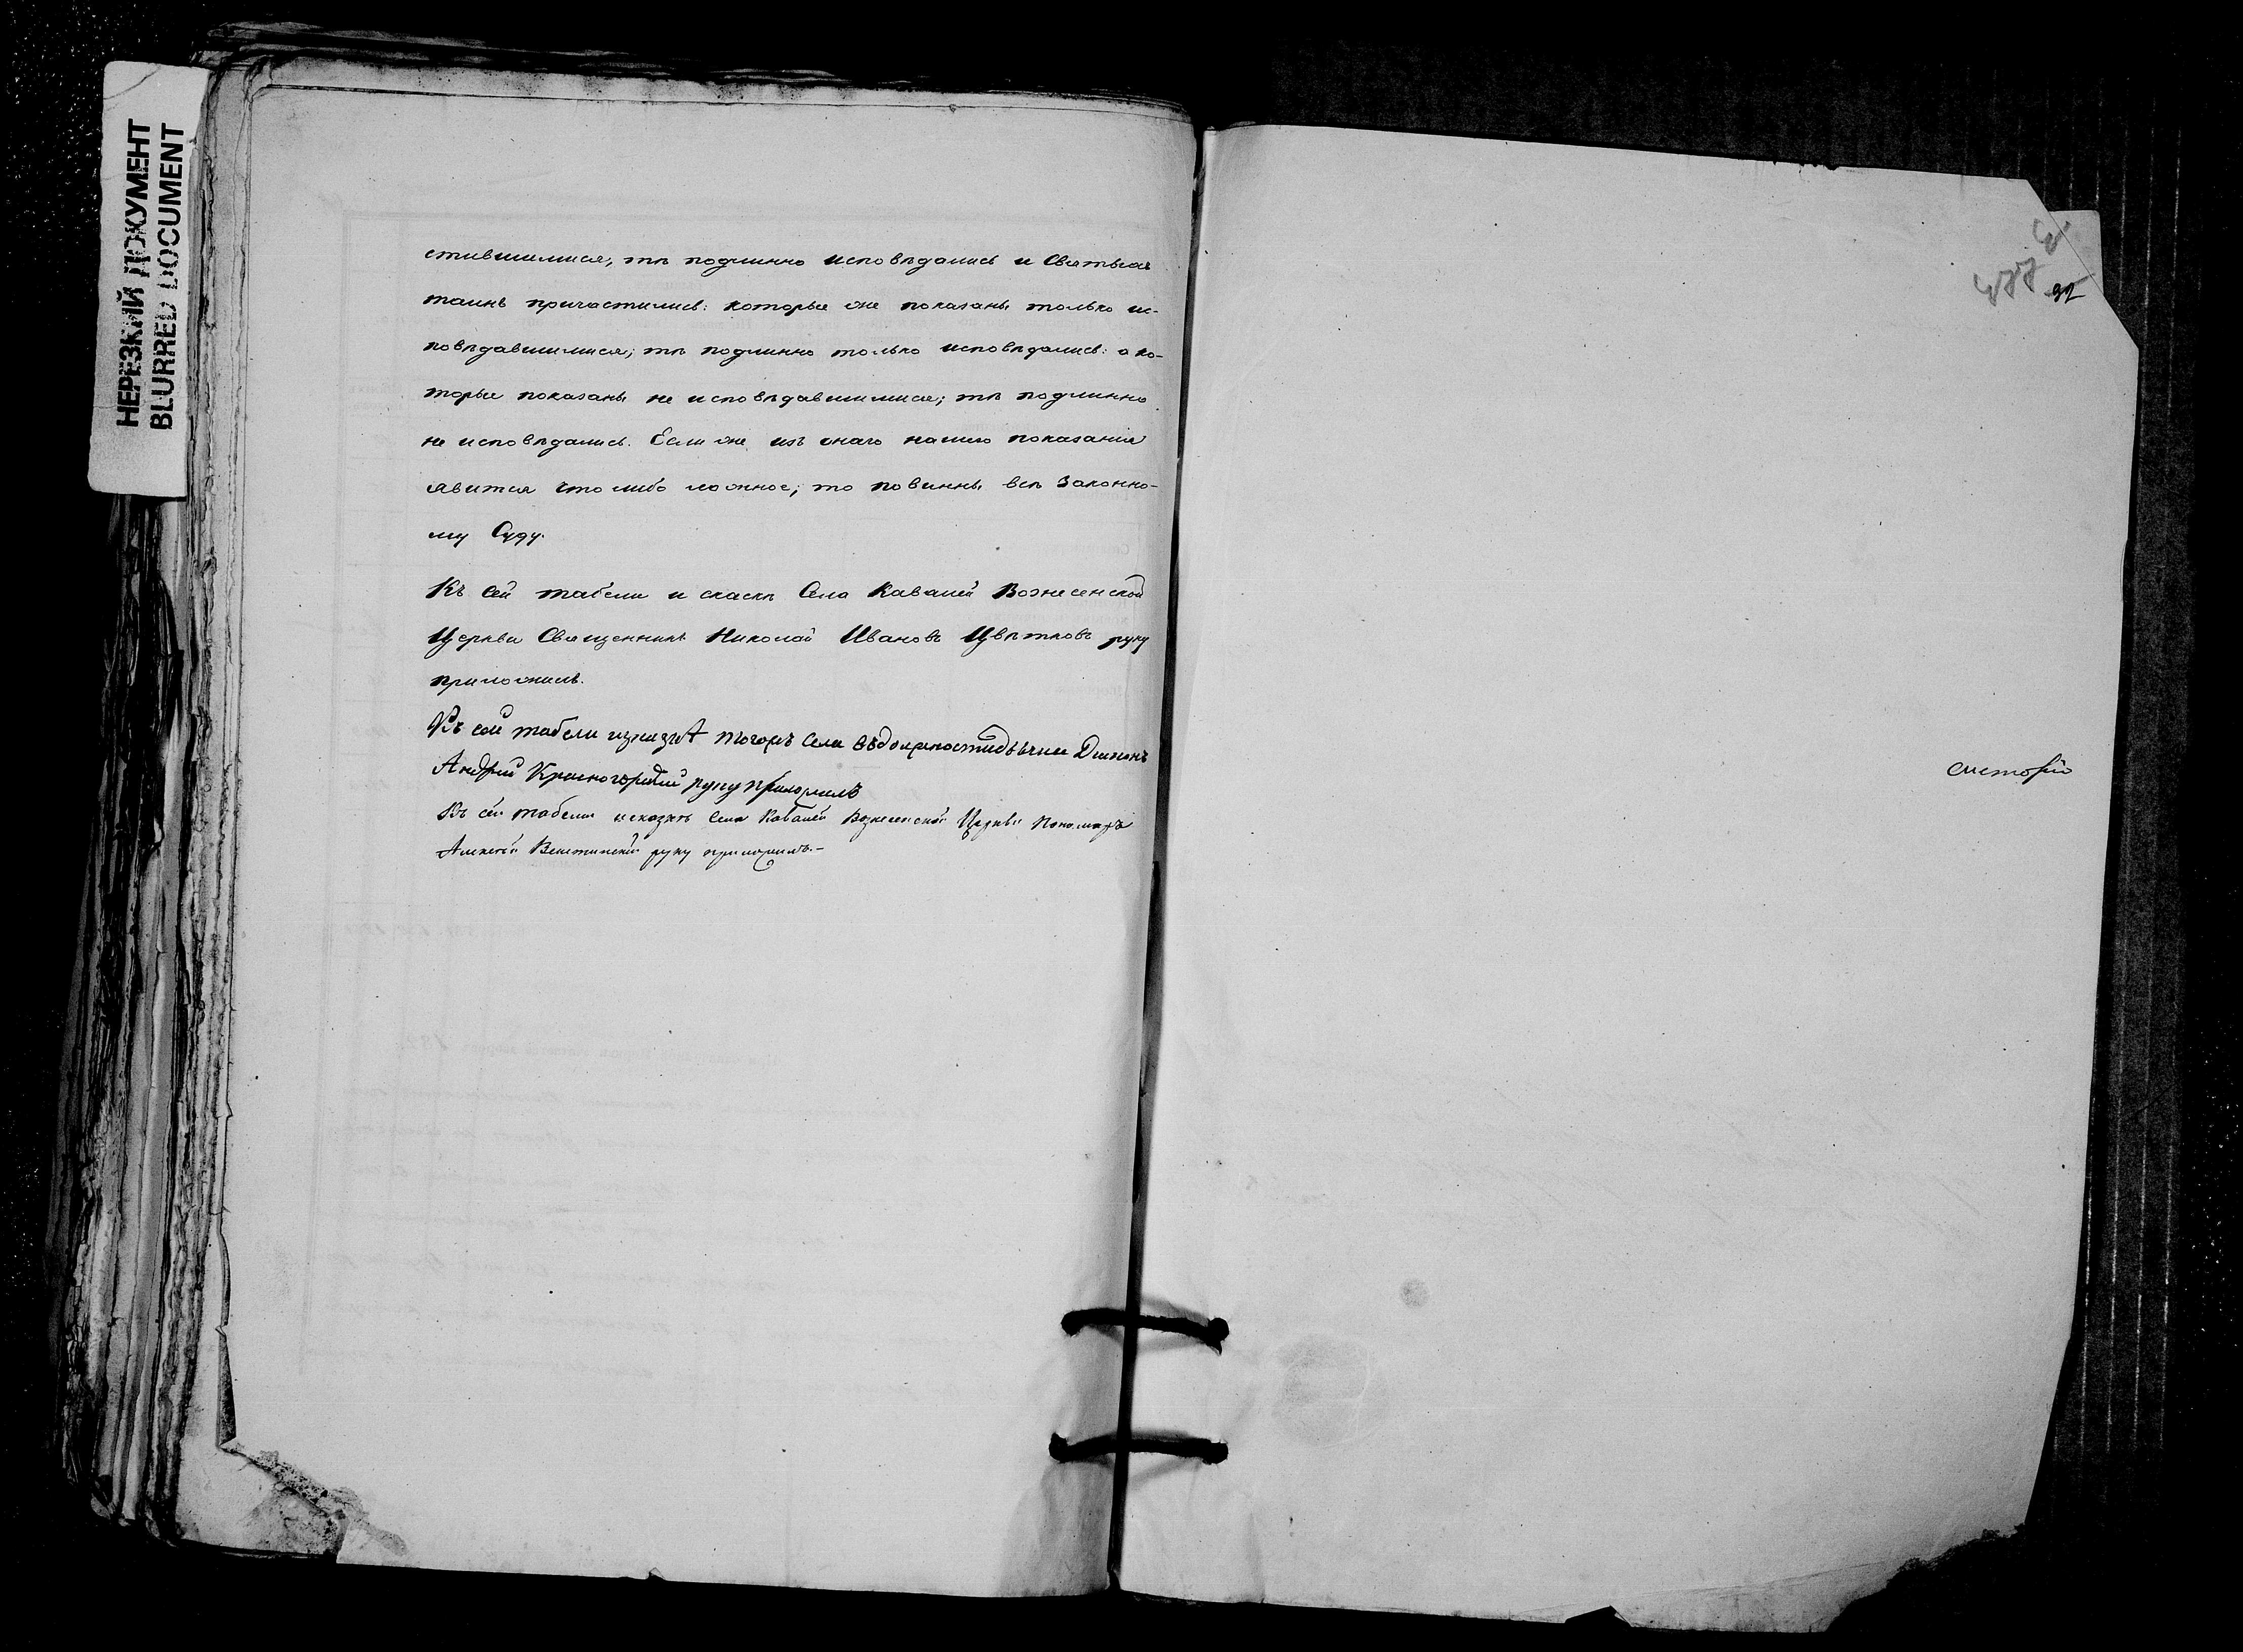 НЕРЕЗКИЙ ДОКУМЕНТ
BLURRED DOCUMENT
стившимися, тѣ подлинно исповѣдались и Святыхъ
таинъ причастились: которые же показаны только ис-
повѣдавшимися; тѣ подлинно только исповѣдались: а ко-
торые показаны не исповѣдавшимися; тѣ подлинно
не исповѣдались. Если же изъ онаго нашего показания
явится что либо ложное; то повинны всѣ Законно-
му Суду.
Къ сей табели и скаскѣ Села Кавалей Вознесенской
Церкви Священникъ Николай Ивановъ Цвѣтковъ руку
приложилъ.
Къ сей табели тогожъ села Дьяконъ
Андрей Красногорскій руку приложилъ
Къ сей табели и сказкѣ Села Кавалей Вознесенской Церкви Пономарь
Алексѣй руку приложилъ.-
92
систорію